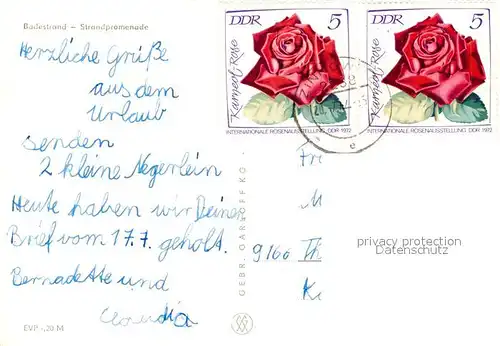 Badestrand – Strandpromenade
Herzliche Grüße
aus dem
Urlaub
senden
2 kleine Negerlein
Heute haben wir Deinen
Brief vom 17.7. geholt.
Bernadette und
Claudia
EVP -,20 M
GEBR. GARLOFF KG ·
DDR 5
Karneol-Rose
INTERNATIONALE ROSENAUSSTELLUNG, DDR 1972
DDR 5
Karneol-Rose
INTERNATIONALE ROSENAUSSTELLUNG, DDR 1972
e
Fr
M
9166 Th
K
privacy protection
Datenschutz